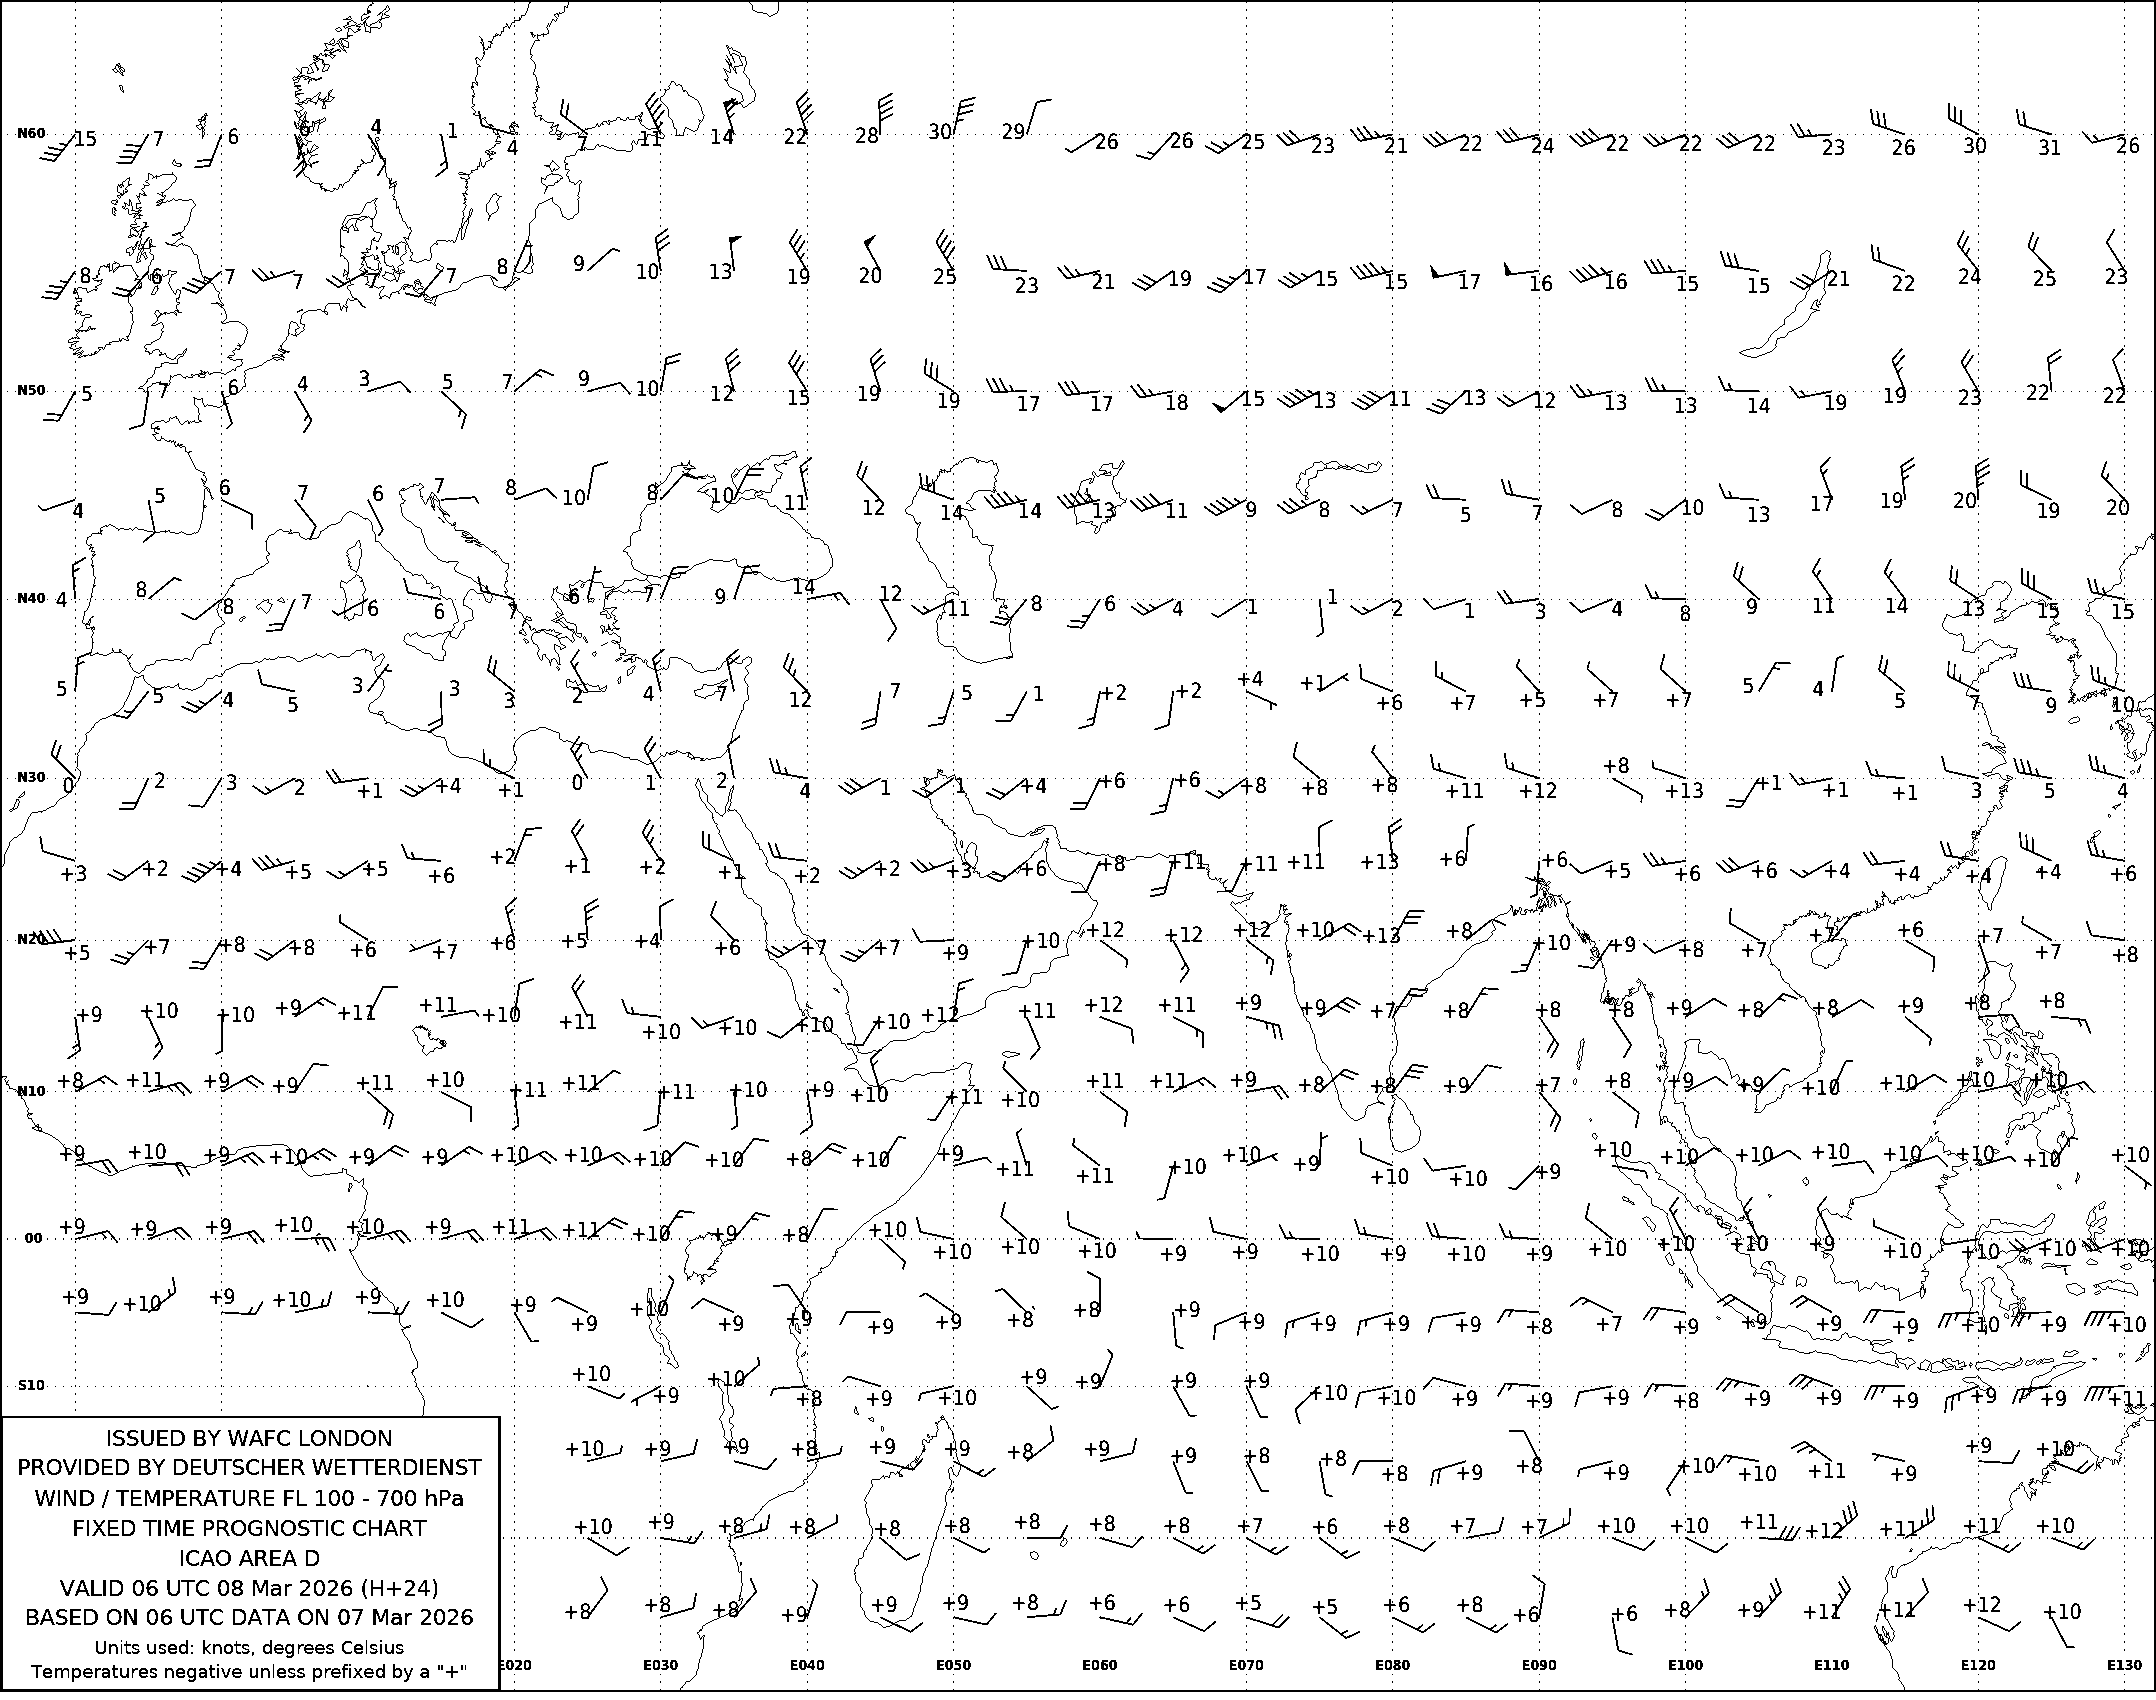 N60 15 7 6 6 4 1 4 7 11 14 22 28 30 29 26 26 25 23 21 22 24 22 22 22 23 26 30 31 26
8 6 7 7 7 7 8 9 10 13 19 20 25 23 21 19 17 15 15 17 16 16 15 15 21 22 24 25 23
N50 5 7 6 4 3 5 7 9 10 12 15 19 19 17 17 18 15 13 11 13 12 13 13 14 19 19 23 22 22
4 5 6 7 6 7 8 10 8 10 11 12 14 14 13 11 9 8 7 5 7 8 10 13 17 19 20 19 20
N40 4 8 8 7 6 6 7 6 7 9 14 12 11 8 6 4 1 1 2 1 3 4 8 9 11 14 13 15 15
5 5 4 5 3 3 3 2 4 7 12 7 5 1 +2 +2 +4 +1 +6 +7 +5 +7 +7 5 4 5 7 9 10
N30 0 2 3 2 +1 +4 +1 0 1 2 4 1 1 +4 +6 +6 +8 +8 +8 +11 +12 +8 +13 +1 +1 +1 3 5 4
+3 +2 +4 +5 +5 +6 +2 +1 +2 +1 +2 +2 +3 +6 +8 +11 +11 +11 +13 +6 +6 +5 +6 +6 +4 +4 +4 +4 +6
N20 +5 +7 +8 +8 +6 +7 +6 +5 +4 +6 +7 +7 +9 +10 +12 +12 +12 +10 +13 +8 +10 +9 +8 +7 +7 +6 +7 +7 +8
+9 +10 +10 +9 +11 +11 +10 +11 +10 +10 +10 +10 +12 +11 +12 +11 +9 +9 +7 +8 +8 +8 +9 +8 +8 +9 +8 +8
N10 +8 +11 +9 +9 +11 +10 +11 +11 +11 +10 +9 +10 +11 +10 +11 +11 +9 +8 +8 +9 +7 +8 +9 +9 +10 +10 +10 +10
+9 +10 +9 +10 +9 +9 +10 +10 +10 +10 +8 +10 +9 +11 +11 +10 +10 +9 +10 +10 +9 +10 +10 +10 +10 +10 +10 +10 +10
00 +9 +9 +9 +10 +10 +9 +11 +11 +10 +9 +8 +10 +10 +10 +10 +9 +9 +10 +9 +10 +9 +10 +10 +10 +9 +10 +10 +10 +10
+9 +10 +9 +10 +9 +10 +9 +9 +10 +9 +9 +9 +9 +8 +8 +9 +9 +9 +9 +9 +8 +7 +9 +9 +9 +9 +10 +9 +10
S10 +10 +9 +10 +8 +9 +10 +9 +9 +9 +9 +10 +10 +9 +9 +9 +8 +9 +9 +9 +9 +9 +11
+10 +9 +9 +8 +9 +9 +8 +9 +9 +8 +8 +8 +9 +8 +9 +10 +10 +11 +9 +9 +10
+10 +9 +8 +8 +8 +8 +8 +8 +8 +7 +6 +8 +7 +7 +10 +10 +11 +12 +11 +11 +10
+8 +8 +8 +9 +9 +9 +8 +6 +6 +5 +5 +6 +8 +6 +6 +8 +9 +11 +11 +12 +10
ISSUED BY WAFC LONDON
PROVIDED BY DEUTSCHER WETTERDIENST
WIND / TEMPERATURE FL 100 - 700 hPa
FIXED TIME PROGNOSTIC CHART
ICAO AREA D
VALID 06 UTC 08 Mar 2026 (H+24)
BASED ON 06 UTC DATA ON 07 Mar 2026
Units used: knots, degrees Celsius
Temperatures negative unless prefixed by a "+"
E020 E030 E040 E050 E060 E070 E080 E090 E100 E110 E120 E130